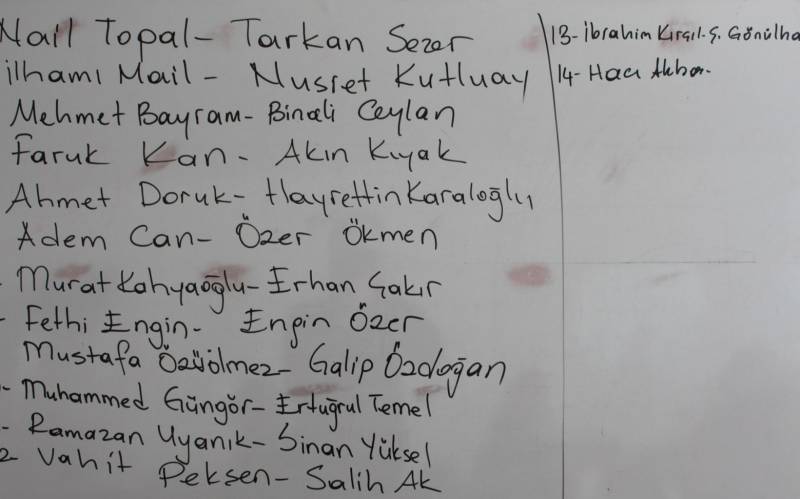 Nail Topal - Tarkan Sezer
ilhamı Mail - Nusret Kutluay
Mehmet Bayram - Binali Ceylan
Faruk Kan - Akın Kıyak
Ahmet Doruk - Hayrettin Karaloğlu
Adem Can - Özer Ökmen
- Murat Kahyaoğlu - Erhan Çakır
- Fethi Engin - Engin Özer
Mustafa Özüölmez - Galip Özdoğan
- Muhammed Güngör - Ertuğrul Temel
- Ramazan Uyanık - Sinan Yüksel
2 Vahit Peksen - Salih Ak
13- ibrahim Kırgıl - Ş. Gönülha
14- Hacı